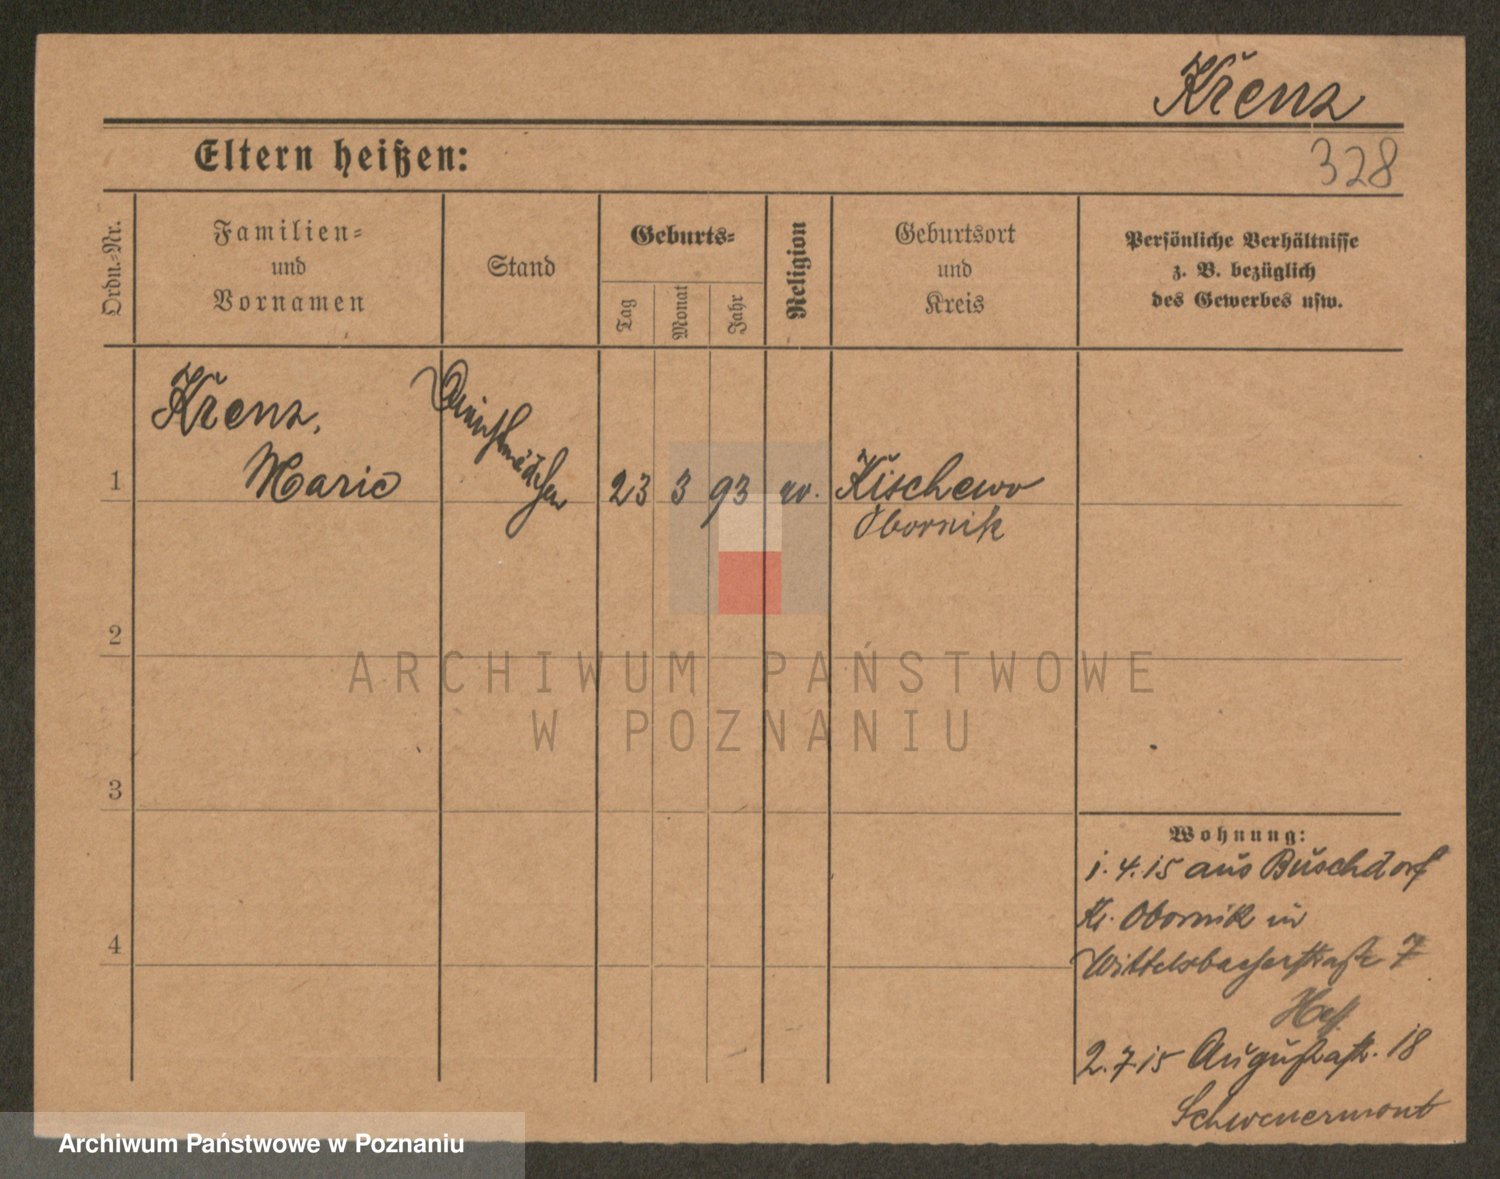 Krenz
328
Eltern heißen:
Ordn.-Nr.
Familien-
und
Vornamen
Stand
Geburts-
Tag
Monat
Jahr
Religion
Geburtsort
und
Kreis
Persönliche Verhältnisse
z. B. bezüglich
des Gewerbes usw.
Krenz,
Marie
Dienstmädchen
1
23 3 93
Kischewo
Obornik
2
ARCHIWUM PAŃSTWOWE
W POZNANIU
3
Wohnung:
1.4.15 aus Buschdorf
Kr. Obornik in
4
Wittelsbacherstraße 7
2.7.15 Augustastr. 18
Archiwum Państwowe w Poznaniu